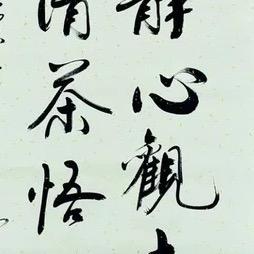 靜心觀
清茶悟